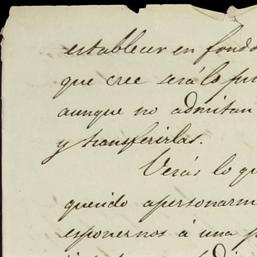 establecer en fondo
que cree será lo
aunque no admitan
y transferirlas.
Verás lo qu
querido apersonarm
esponernos á una p